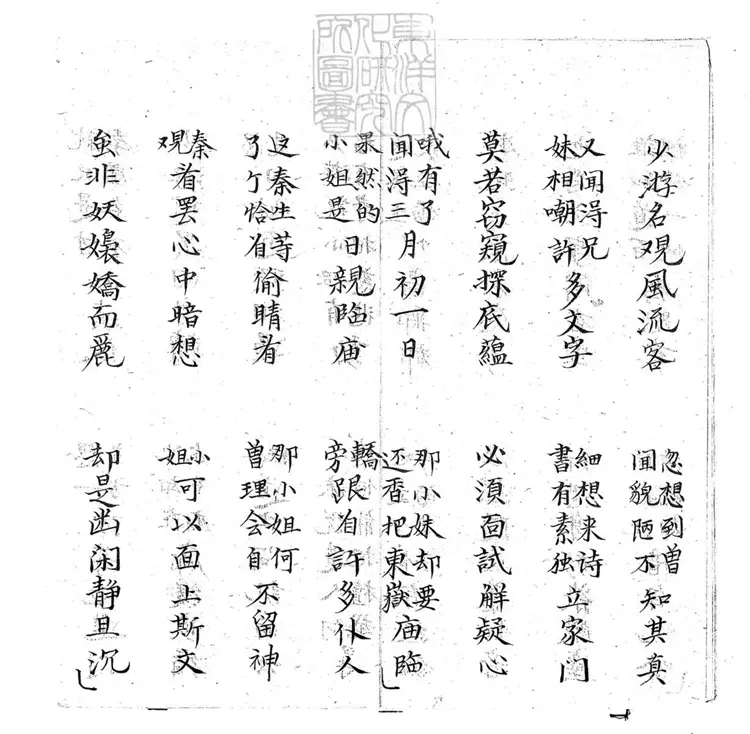 東洋文
化研究
所圖書
少游名观風流客
忽想到曾聞貌陋不知其真
又聞淂兄妹相嘲許多文字
細想来诗書有素独立家门
莫若窃窺探底蘊
必須面試解疑心
哦有了聞淂三月初一日
那小妹却要还香把東嶽庙臨
果然的小姐是日親臨庙
轎旁跟着許多仆人
这秦生等了个恰有偷睛看
那小姐何曾理会自不留神
秦观看罢心中暗想
小姐可以面上斯文
虽非妖嬝嬌而麗
却是幽闲静且沉